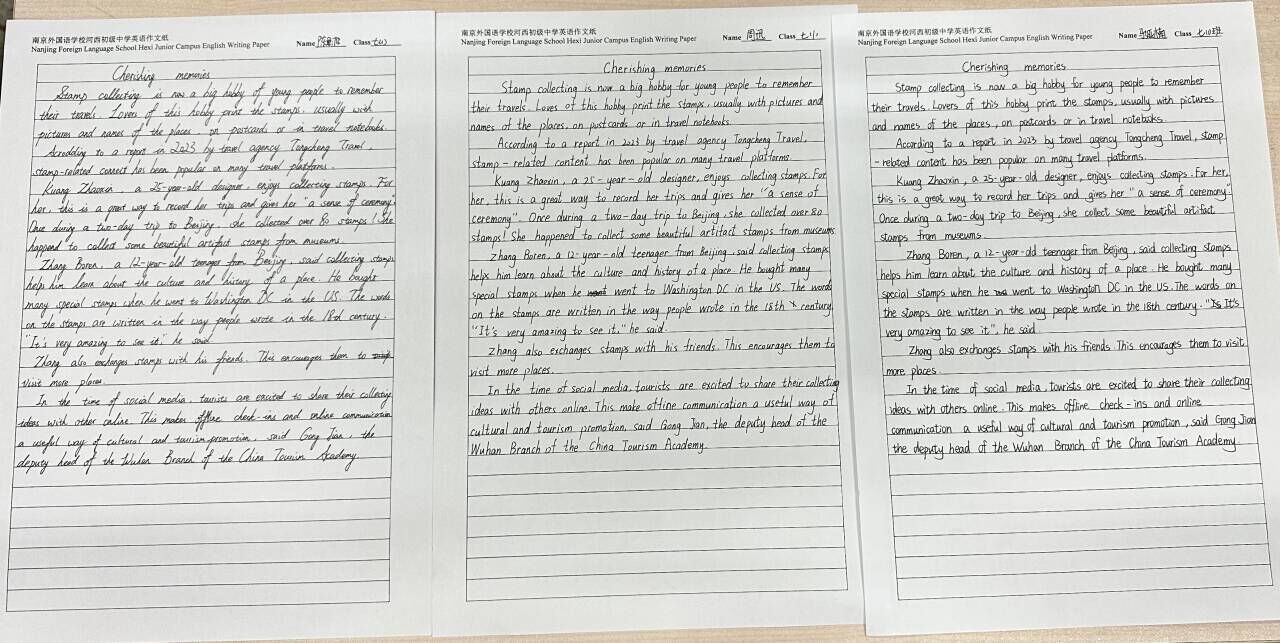 南京外国语学校河西初级中学英语作文纸
Nanjing Foreign Language School Hexi Junior Campus English Writing Paper
Name Class
Cherishing memories
Stamp collecting is now a big hobby of young people to remember
their travels. Lovers of this hobby print the stamps, usually with
pictures and names of the places, on postcards or in travel notebooks.
Acrodding to a report in 2023 by travel agency Tongcheng Travel,
stamp-related content has been popular on many travel platforms.
Kuang Zhaoxin, a 25-year-old designer, enjoys collecting stamps. For
her, this is a great way to record her trips and gives her "a sense of ceremony".
Once during a two-day trip to Beijing, she collected over 80 stamps! She
happened to collect some beautiful artifact stamps from museums.
Zhang Boren, a 12-year-old teenager from Beijing, said collecting stamps
help him learn about the culture and history of a place. He bought
many special stamps when he went to Washington DC in the US. The words
on the stamps are written in the way people wrote in the 18rd century.
"It's very amazing to see it," he said.
Zhang also exchanges stamps with his friends. This encourages them to
visit more places.
In the time of social media, tourists are excited to share their collecting
ideas with other online. This makes offline check-ins and online communication
a useful way of cultural and tourism promotion, said Gong Jian, the
deputy head of the Wuhan Branch of the China Tourism Academy.
南京外国语学校河西初级中学英语作文纸
Nanjing Foreign Language School Hexi Junior Campus English Writing Paper
Name 周讯 Class
Cherishing memories
Stamp collecting is now a big hobby for young people to remember
their travels. Loves of this hobby print the stamps, usually with pictures and
names of the places, on postcards or in travel notebooks.
According to a report in 2023 by travel agency Tongcheng Travel,
stamp-related content has been popular on many travel platforms.
Kuang Zhaoxin, a 25-year-old designer, enjoys collecting stamps. For
her, this is a great way to record her trips and gives her "a sense of
ceremony". Once during a two-day trip to Beijing, she collected over 80
stamps! She happened to collect some beautiful artifact stamps from museums.
Zhang Boren, a 12-year-old teenager from Beijing, said collecting stamps
helps him learn about the culture and history of a place. He bought many
special stamps when he went to Washington DC in the US. The words
on the stamps are written in the way people wrote in the 18th century.
"It's very amazing to see it." he said.
Zhang also exchanges stamps with his friends. This encourages them to
visit more places.
In the time of social media, tourists are excited to share their collecting
ideas with others online. This make offline communication a useful way of
cultural and tourism promotion, said Gong Jian, the deputy head of the
Wuhan Branch of the China Tourism Academy.
南京外国语学校河西初级中学英语作文纸
Nanjing Foreign Language School Hexi Junior Campus English Writing Paper
Name Class 七、10班
Cherishing memories
Stamp collecting is now a big hobby for young people to remember
their travels. Lovers of this hobby print the stamps, usually with pictures
and names of the places, on postcards or in travel notebooks.
According to a report in 2023 by travel agency Tongcheng Travel, stamp
-related content has been popular on many travel platforms.
Kuang Zhaoxin, a 25-year-old designer, enjoys collecting stamps. For her,
this is a great way to record her trips and gives her "a sense of ceremony".
Once during a two-day trip to Beijing, she collect some beautiful artifact
stamps from museums.
Zhang Boren, a 12-year-old teenager from Beijing, said collecting stamps
helps him learn about the culture and history of a place. He bought many
special stamps when he went to Washington DC in the US. The words on
the stamps are written in the way people wrote in the 18th century. "It's
very amazing to see it", he said.
Zhang also exchanges stamps with his friends. This encourages them to visit
more places.
In the time of social media, tourists are excited to share their collecting
ideas with others online. This makes offline check-ins and online
communication a useful way of cultural and tourism promotion, said Gong Jian
the deputy head of the Wuhan Branch of the China Tourism Academy.